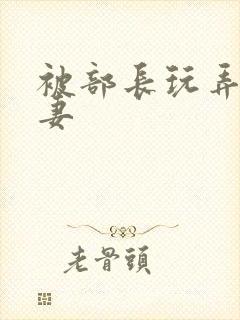 被部長玩弄
妻
老骨頭